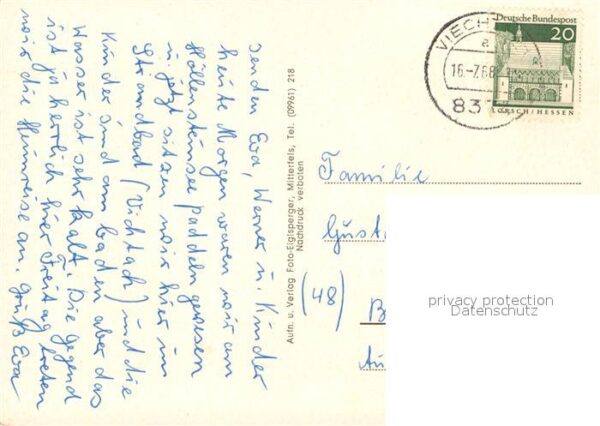 senden Eva, Werner u. Kinder
heute Morgen waren wir am
Höllensteinsee paddeln gewesen
u. jetzt sitzen wir hier im
Strandbad (Vichtach) und die
Kinder sind am baden aber das
Wasser ist sehr kalt. Die Gegend
ist ja herrlich hier Freitag treten
wir die Heimreise an. Gruß Eva
Aufn. u. Verlag Foto-Eiglsperger, Mitterfels, Tel. (09961) 218
Nachdruck verboten
VIECH
a
16.-7.68
837
Deutsche Bundespost
20
LORSCH/HESSEN
Familie
Gust
(48) B
privacy protection
Datenschutz